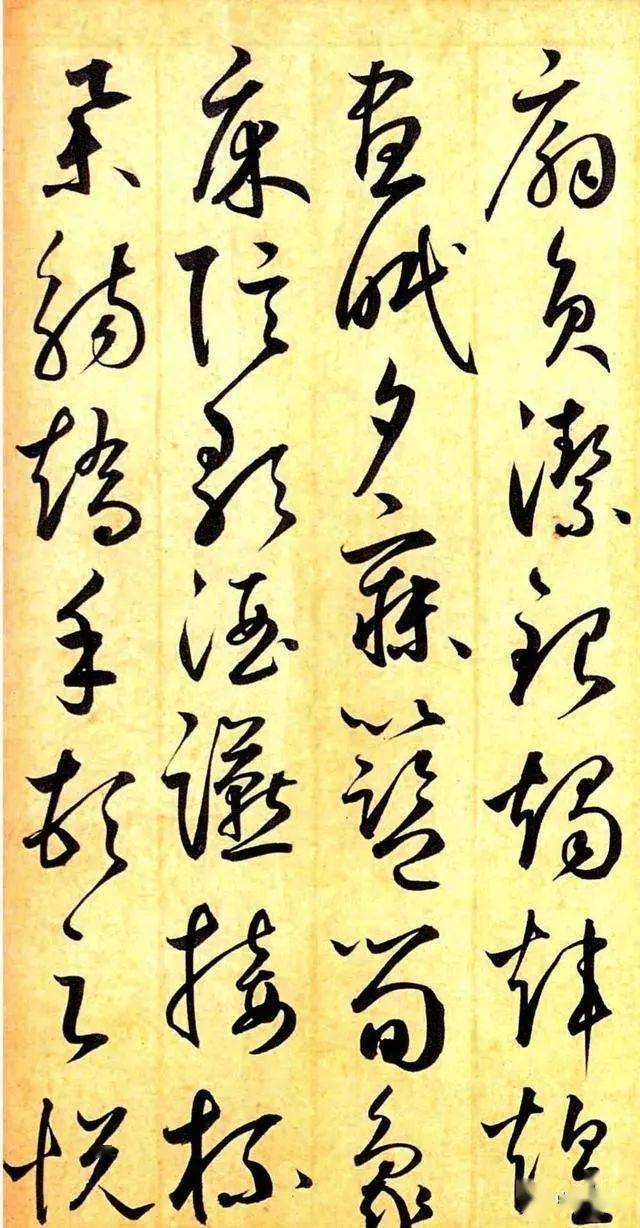 扇員潔銀燭煒煌
晝眠夕寐籃筍象
床弦歌酒讌接杯
舉觴矯手頓足悅